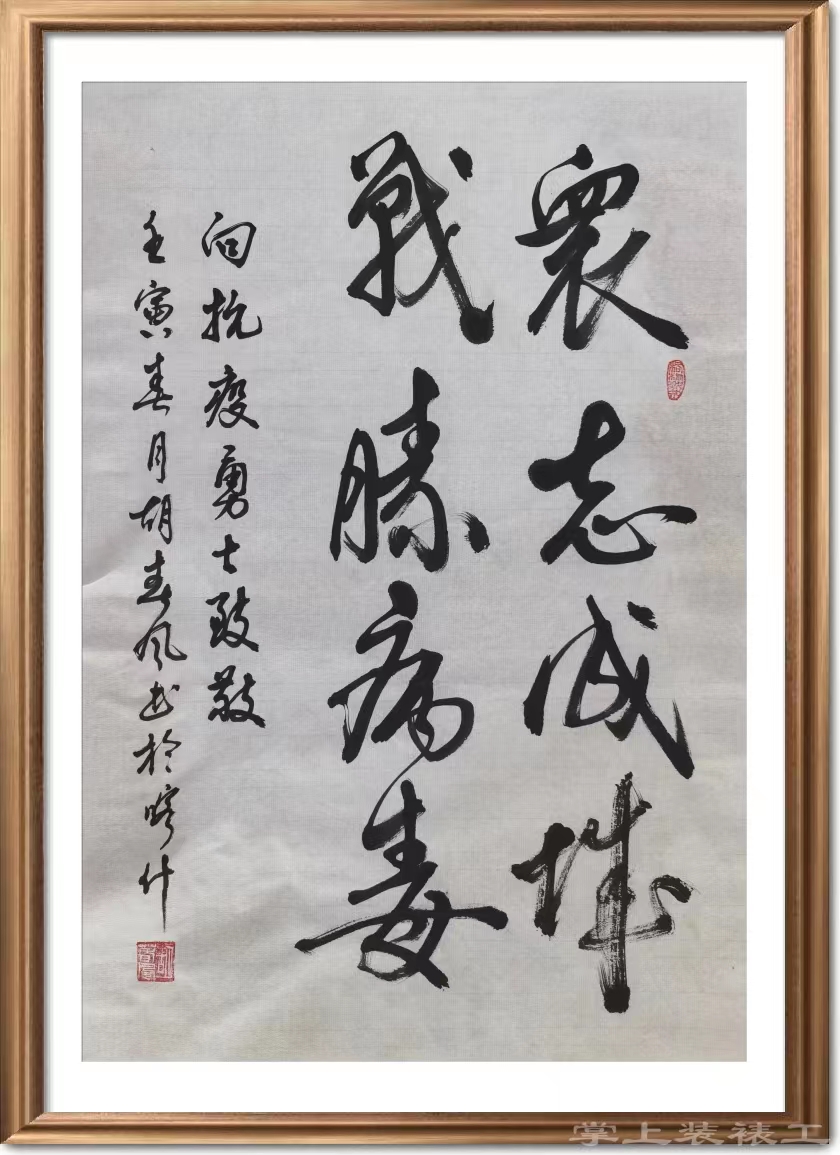 眾志成城
戰勝病毒
向抗疫勇士致敬
壬寅春月胡春风书於喀什
掌上装裱工